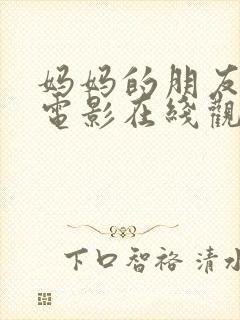 妈妈的朋友
電影在綫觀
下口智裕 清水